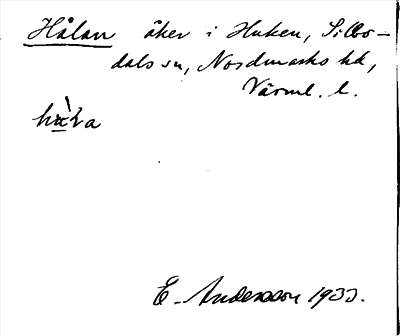 Hålan åker i Huken, Sillbo-
dals sn, Nordmarks hd,
Värml. l.
E. Andersson 1933.